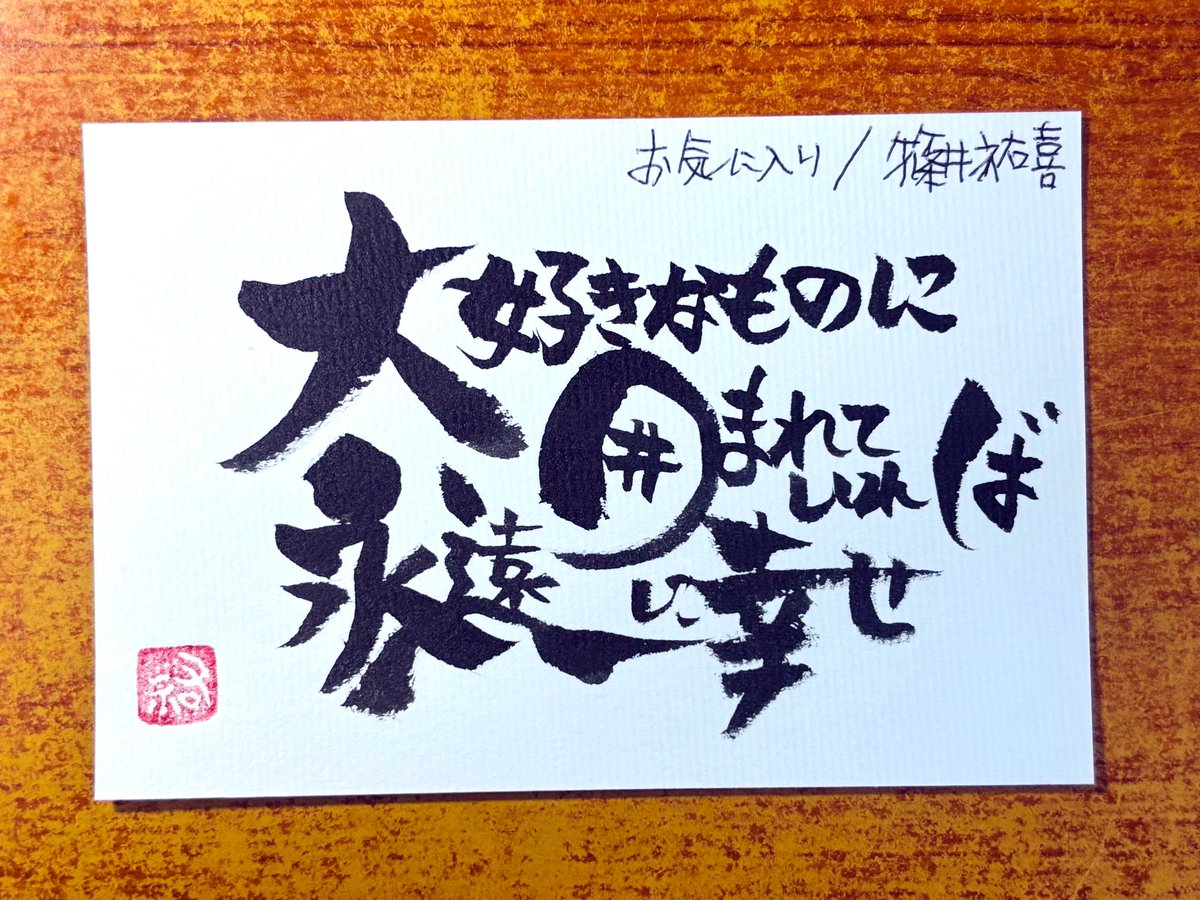 お気に入り/篠井祐喜
大好きなものに
囲まれて
いれば
永遠に幸せ